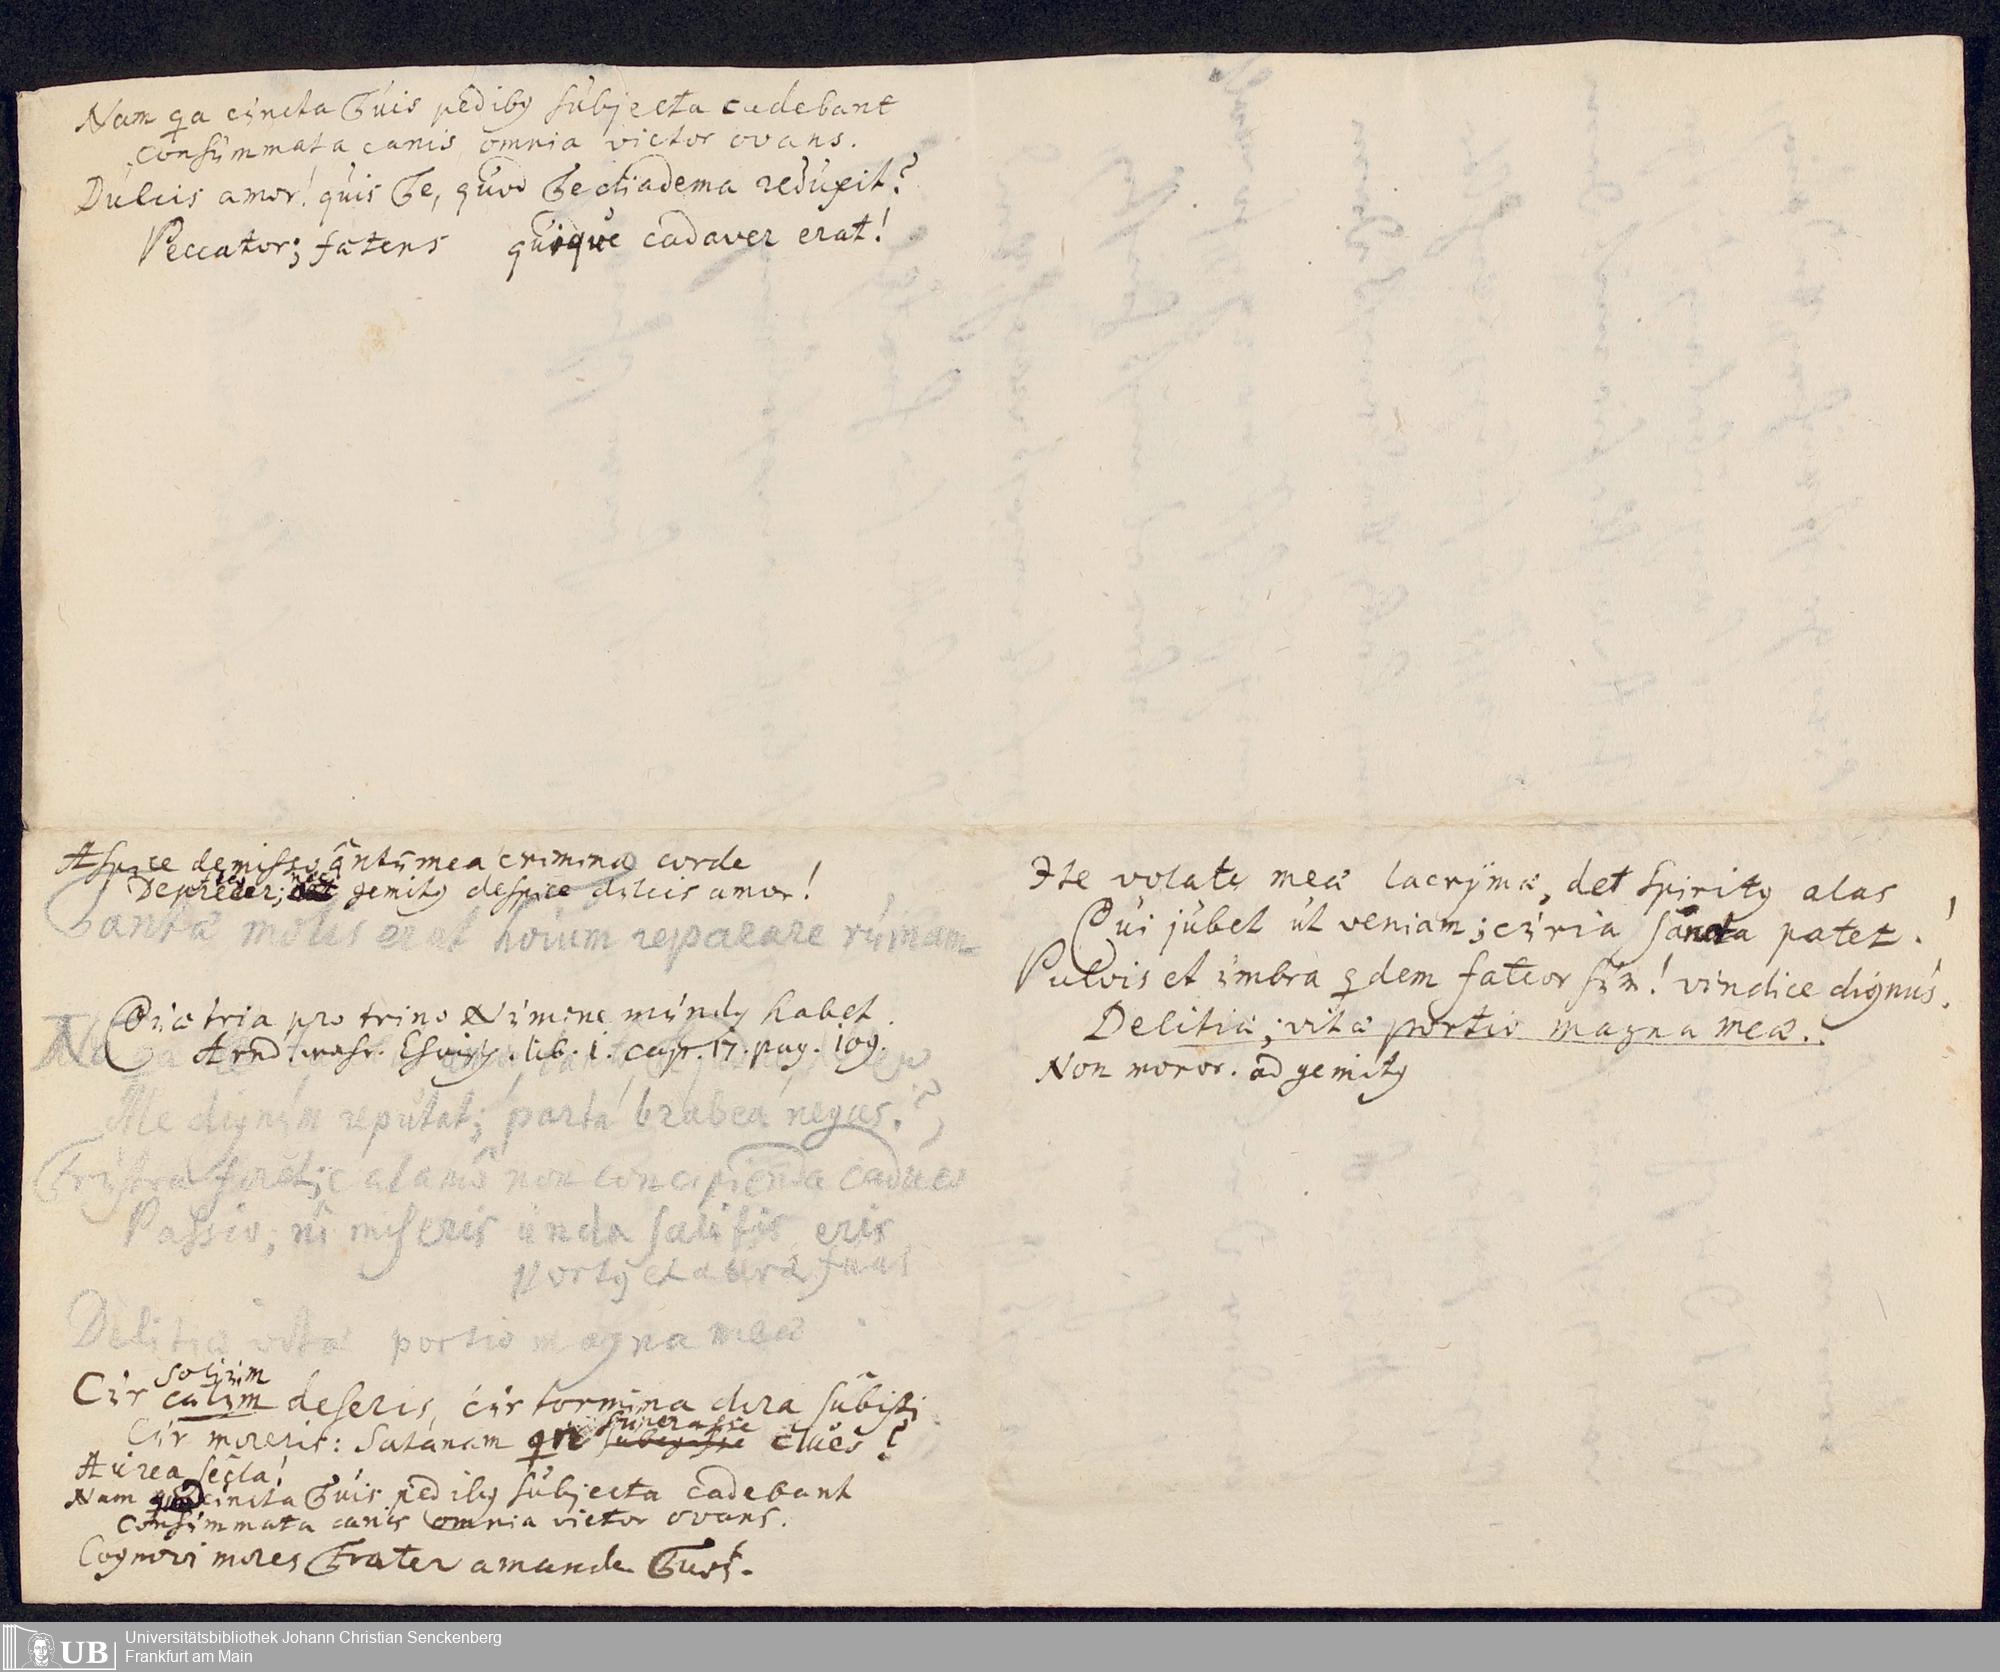 Nam qa cuncta Tuis pedibq subjecta cadebant
consummata canis omnia victor ovans.
Dulcis amor! quis Te, quod Te diadema reduxit?
Peccator; fatens quique cadaver erat!
Aspice demisso qntu mea crimina corde
Deprecer; nec gemitq despice dulcis amor!
Tantæ molis erat hoium reparare ruinam
Quæ tria pro trino Numine mundq habet.
Arnd. Lib. 1. cap. 17. pag. 109.
Me dignum reputat; parta brabea negas?
Frustra non concipienda caduco
Passio; ni miseris unda salutis eris
Portq et aura
Delitiæ vitæ portio magna meæ
solium
Cur cælum deseris, cur tormina dira subisti
superasse
Cur moreris: Satanam subegisse clues?
Aurea secla!
Nam cuncta Tuis pedibq subjecta cadebant
Consummata canis omnia victor ovans.
Cognovi mores Frater amande Tuos.
Ite volate meæ lacrymæ, det Spiritq alas
Qui jubet ut veniam; curia sancta patet!
Pulvis et umbra qdem fateor sum! vindice dignus.
Delitiæ; vitæ portio magna meæ.
Non moror. ad gemitq
UB
Universitätsbibliothek Johann Christian Senckenberg
Frankfurt am Main